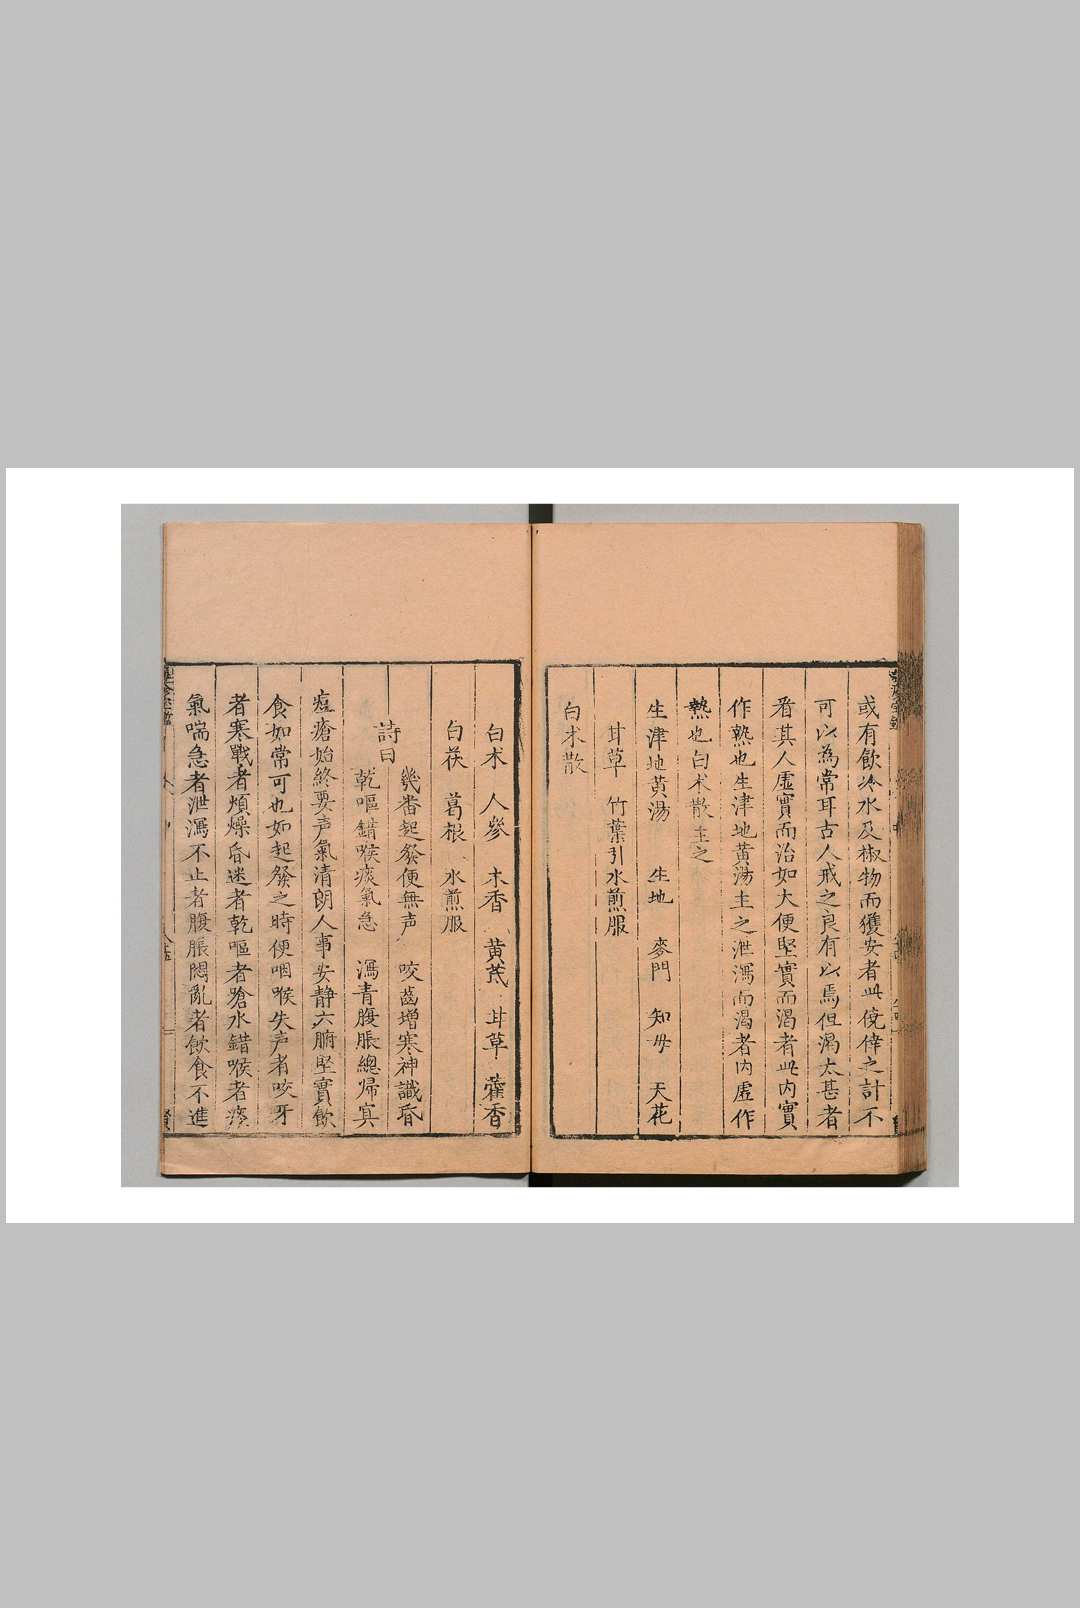 或有飲冷水及椒物而獲安者此僥倖之計不
可以為常耳古人戒之良有以焉但渴太甚者
看其人虛實而治如大便堅實而渴者此內實
作熱也生津地黃湯主之泄瀉而渴者內虛作
熱也白朮散主之
生津地黃湯 生地 麥門 知母 天花
甘草 竹葉引水煎服
白朮散
白朮 人參 木香 黃芪 甘草 藿香
白茯 葛根 水煎服
詩曰
幾畨起發便無声 咬齒增寒神識昏
乾嘔錯喉痰氣急 瀉青腹脹總歸㝠
痘瘡始終要声氣清朗人事安静六腑堅實飲
食如常可也如起發之時便咽喉失声者咬牙
者寒戰者煩燥昏迷者乾嘔者嗆水錯喉者痰
氣喘急者泄瀉不止者腹脹悶亂者飲食不進